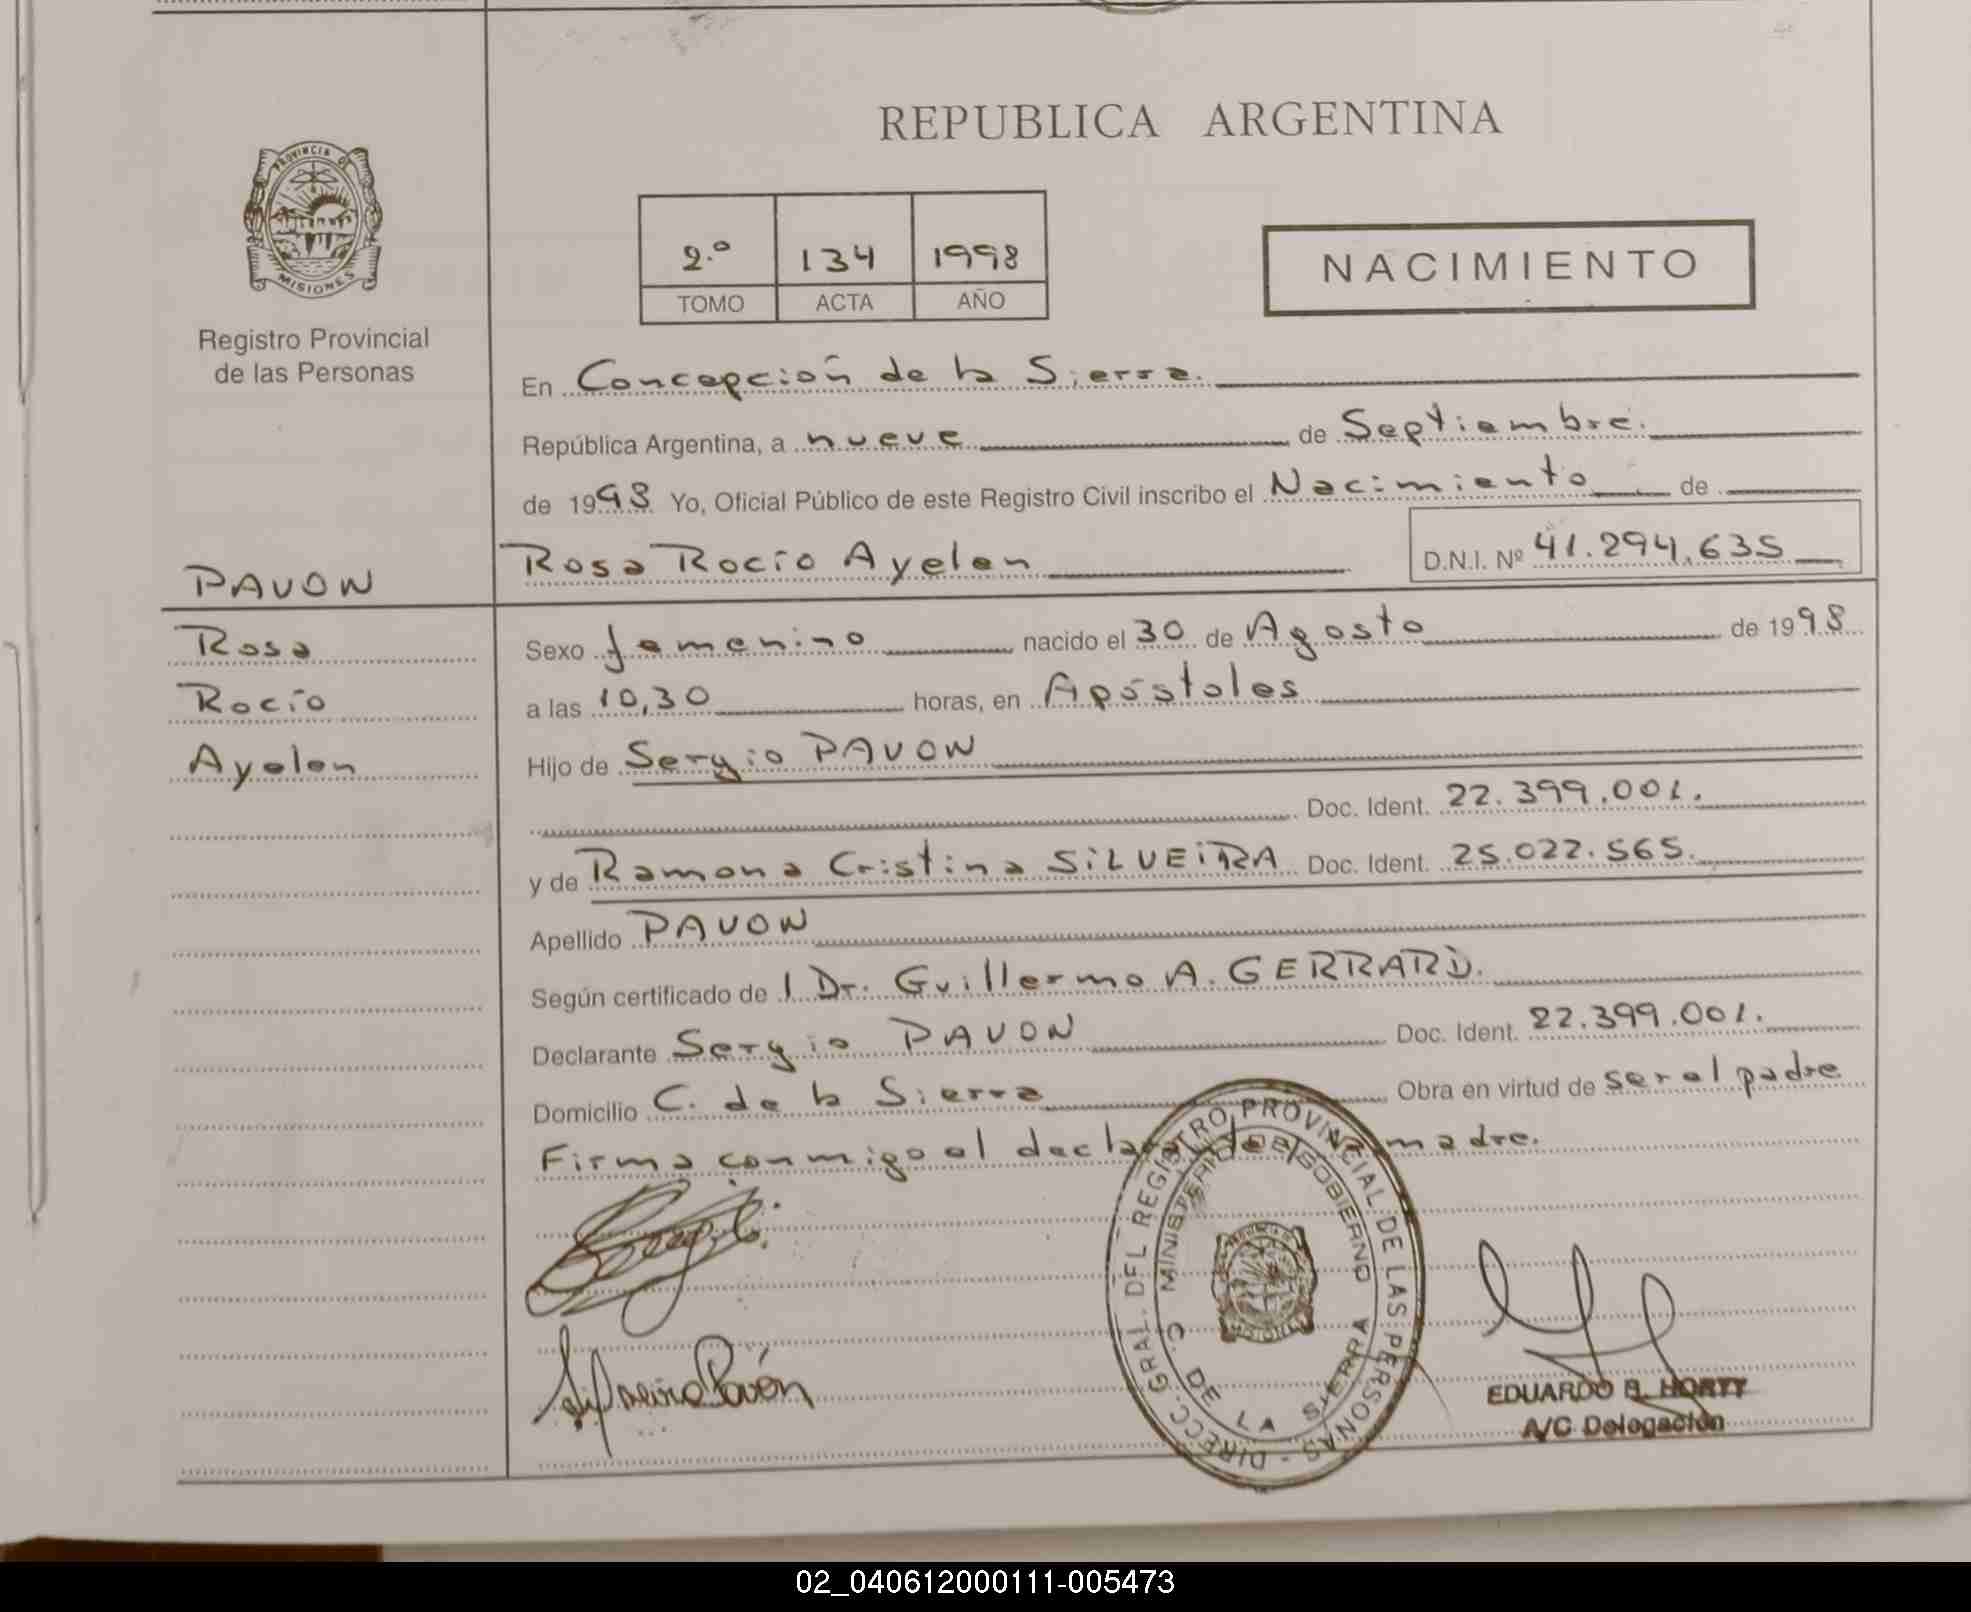 REPUBLICA ARGENTINA
PROVINCIA DE
MISIONES
Registro Provincial
de las Personas
2.º 134 1998
TOMO ACTA AÑO
NACIMIENTO
En Concepción de la Sierra.
República Argentina, a nueve de Septiembre.
de 1998 Yo, Oficial Público de este Registro Civil inscribo el Nacimiento de
Rosa Rocío Ayelen D.N.I. Nº 41.294.635
PAVON
Rosa
Rocío
Ayelen
Sexo femenino nacido el 30 de Agosto de 1998
a las 10,30 horas, en Apóstoles
Hijo de Sergio PAVON
Doc. Ident. 22.399.001.
y de Ramona Cristina SILVEIRA Doc. Ident. 25.022.565.
Apellido PAVON
Según certificado de l Dr. Guillermo A. GERRARD.
Declarante Sergio PAVON Doc. Ident. 22.399.001.
Domicilio C. de la Sierra Obra en virtud de ser el padre
Firma conmigo el declarante y madre.
DIRECC. GRAL. DEL REGISTRO PROVINCIAL DE LAS PERSONAS -
MINISTERIO DE GOBIERNO
C. DE LA SIERRA
Pavón
EDUARDO R. HORTT
A/C Delegación
02_040612000111-005473